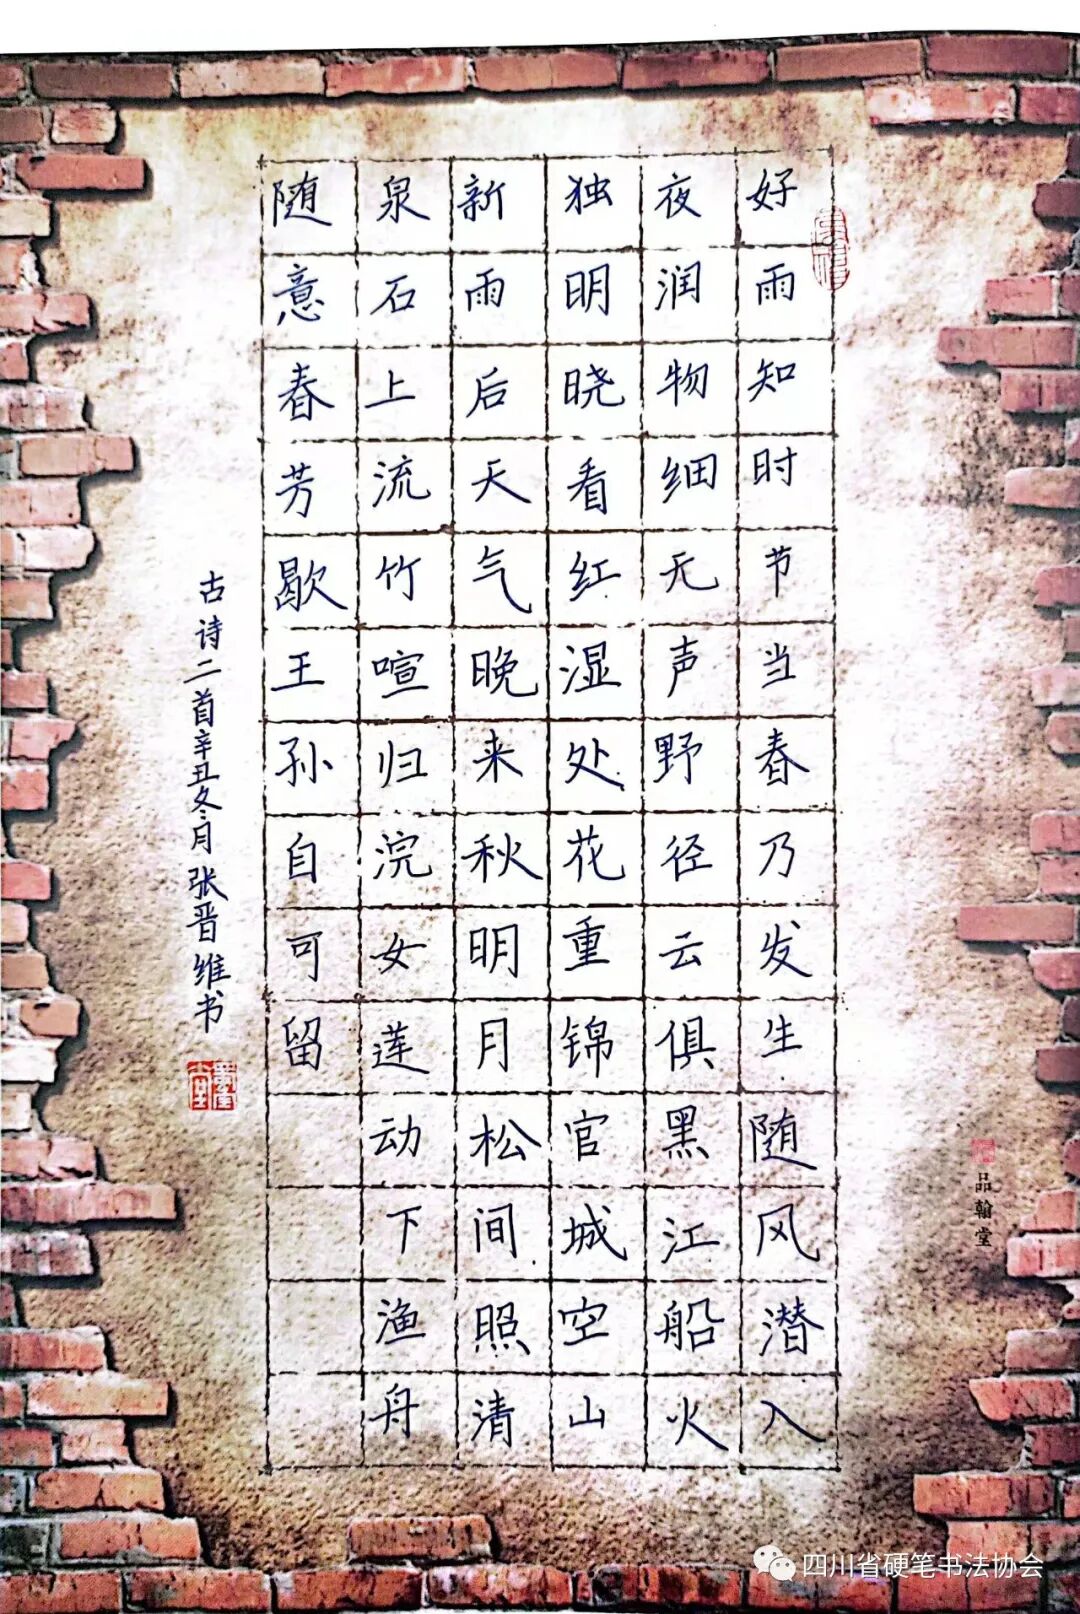 好雨知时节当春乃发生随风潜入
夜润物细无声野径云俱黑江船火
独明晓看红湿处花重锦官城空山
新雨后天气晚来秋明月松间照清
泉石上流竹喧归浣女莲动下渔舟
随意春芳歇王孙自可留
古诗二首辛丑冬月张晋维书
品翰堂
四川省硬笔书法协会